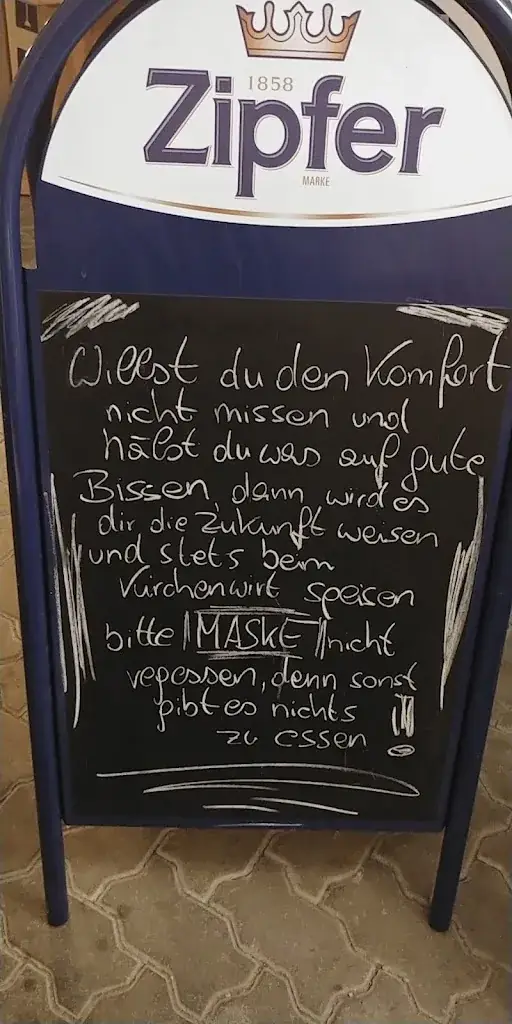 1858
Zipfer
MARKE
Willst du den Komfort
nicht missen und
hälst du was auf gute
Bissen, dann wird es
dir die Zukunft weisen
und stets beim
Vürchenwirt speisen
bitte MASKE nicht
vegessen, denn sonst
gibt es nichts
zu essen !!!